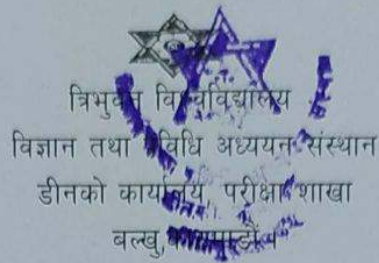 त्रिभुवन विश्वविद्यालय
विज्ञान तथा प्रविधि अध्ययन संस्थान
डीनको कार्यालय, परीक्षा शाखा
बल्खु,